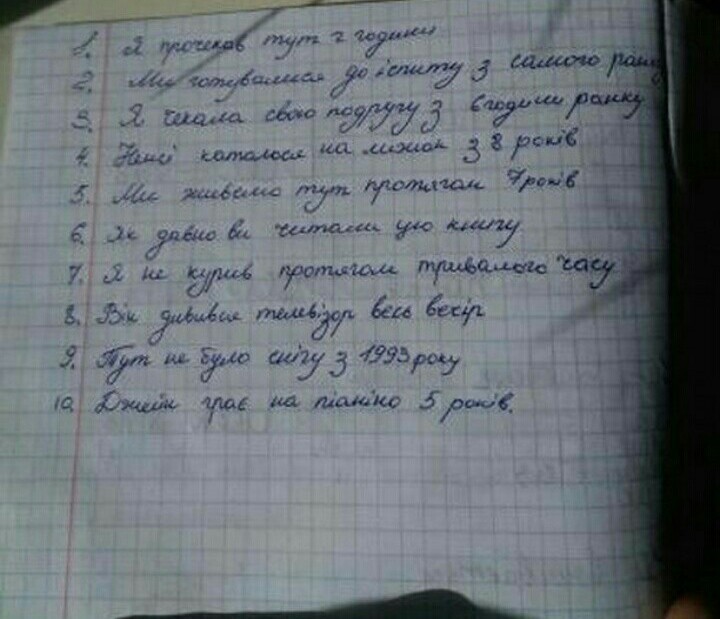 1. Я прочекав тут 2 години
2. Ми готувалися до іспиту з самого ранку
3. Я чекала свою подругу з 6 години ранку
4. Ненсі каталося на лижах з 8 років
5. Ми живемо тут протягом 7 років
6. Як давно ви читали цю книгу
7. Я не курив протягом тривалого часу
8. Він дивився телевізор весь вечір
9. Тут не було снігу з 1993 року
10. Джейн грає на піаніно 5 років.